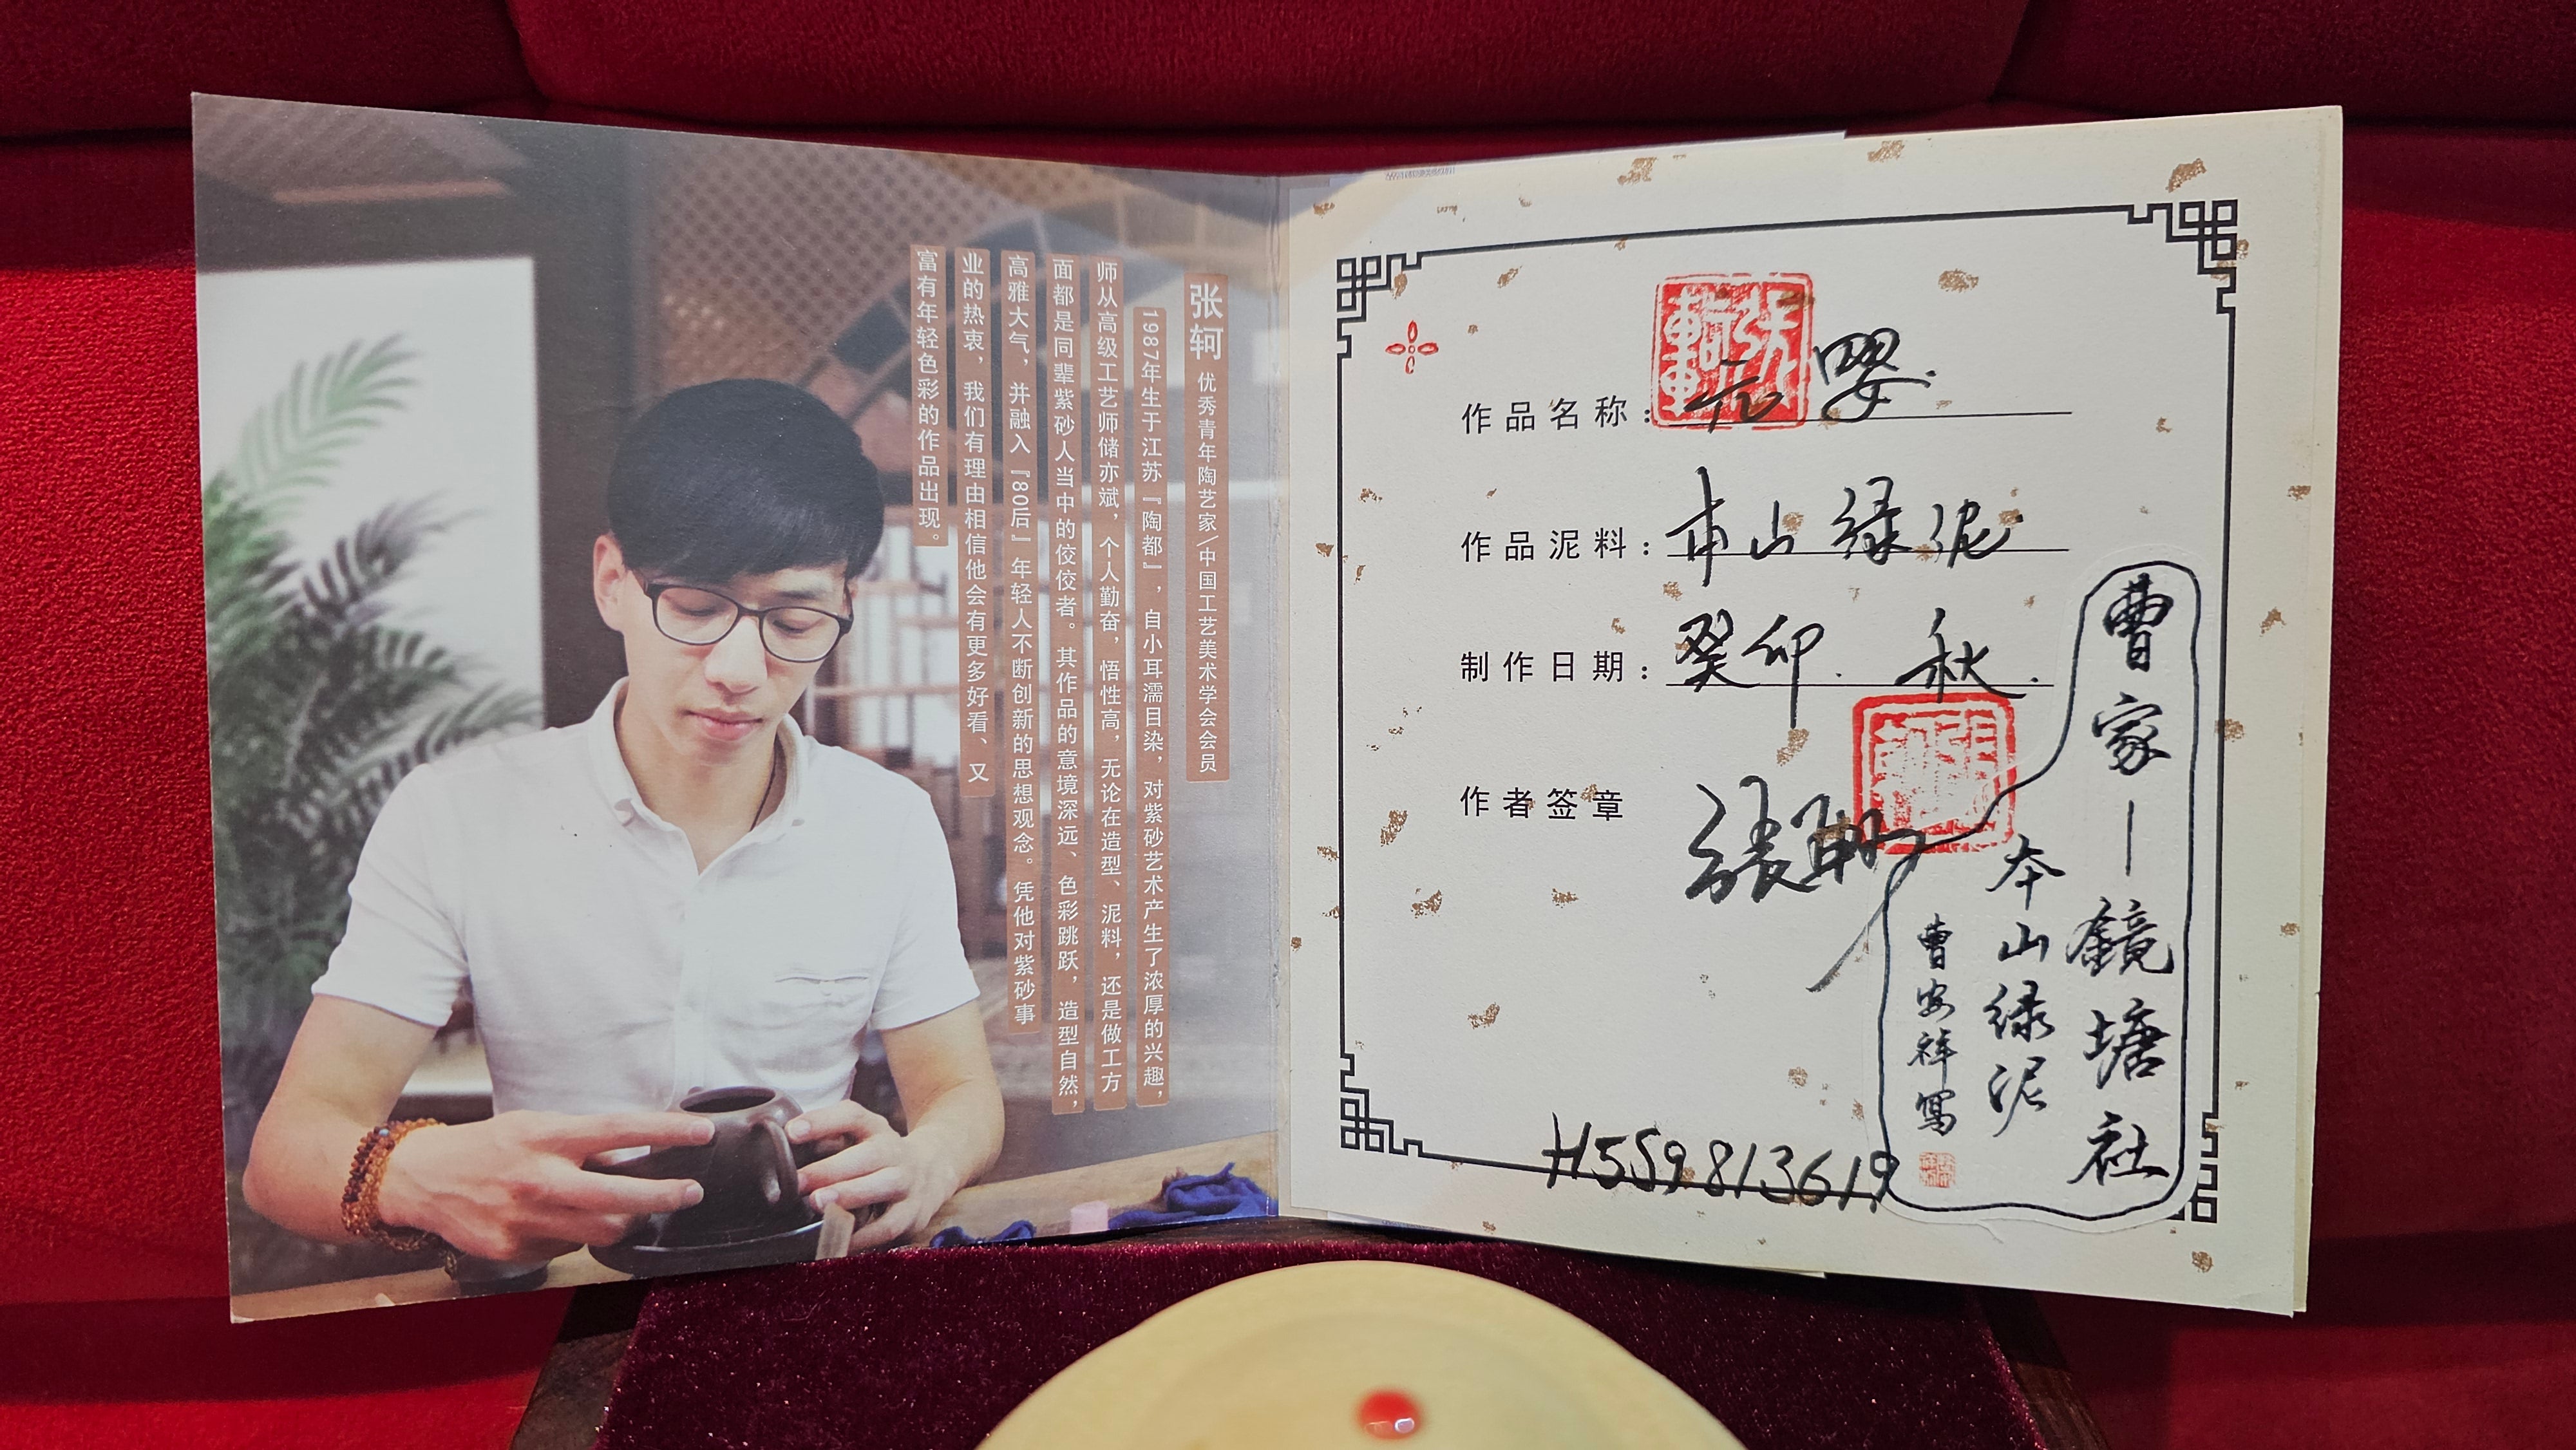 张轲 优秀青年陶艺家\中国工艺美术学会会员
1987年生于江苏『陶都』，自小耳濡目染，对紫砂艺术产生了浓厚的兴趣，
师从高级工艺师储亦斌，个人勤奋，悟性高，无论在造型、泥料，还是做工方
面都是同辈紫砂人当中的佼佼者。其作品的意境深远、色彩跳跃，造型自然，
高雅大气，并融入『80后』年轻人不断创新的思想观念。凭他对紫砂事
业的热衷，我们有理由相信他会有更多好看、又
富有年轻色彩的作品出现。
作品名称：元婴
作品泥料：本山绿泥
制作日期：癸卯．秋．
作者签章
張軻
曹家—鏡塘社
本山绿泥
曹安祥寫
H559813619